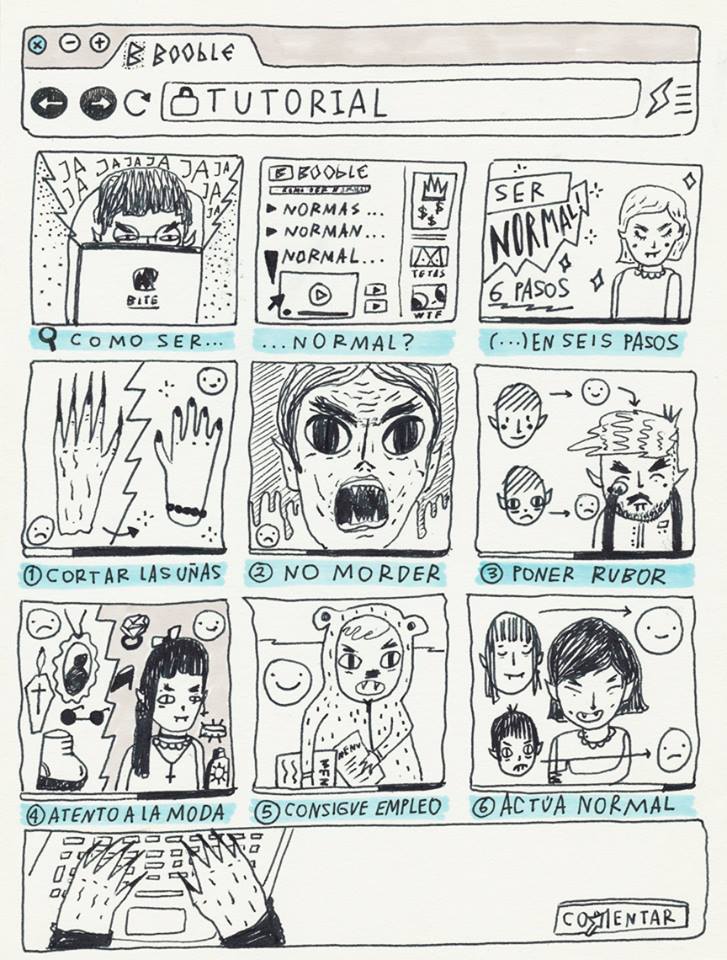 BOOBLE
TUTORIAL
JA JA JA JA JA JA JA
JA JA JA
JA
BITE
COMO SER...
BOOBLE
NORMAS...
NORMAN...
NORMAL...
$ $
$
TETAS
WTF
...NORMAL?
SER
NORMAL!
6 PASOS
(...) EN SEIS PASOS
① CORTAR LAS UÑAS
② NO MORDER
③ PONER RUBOR
④ ATENTO A LA MODA
MENU
MENU
⑤ CONSIGUE EMPLEO
⑥ ACTÚA NORMAL
COMENTAR